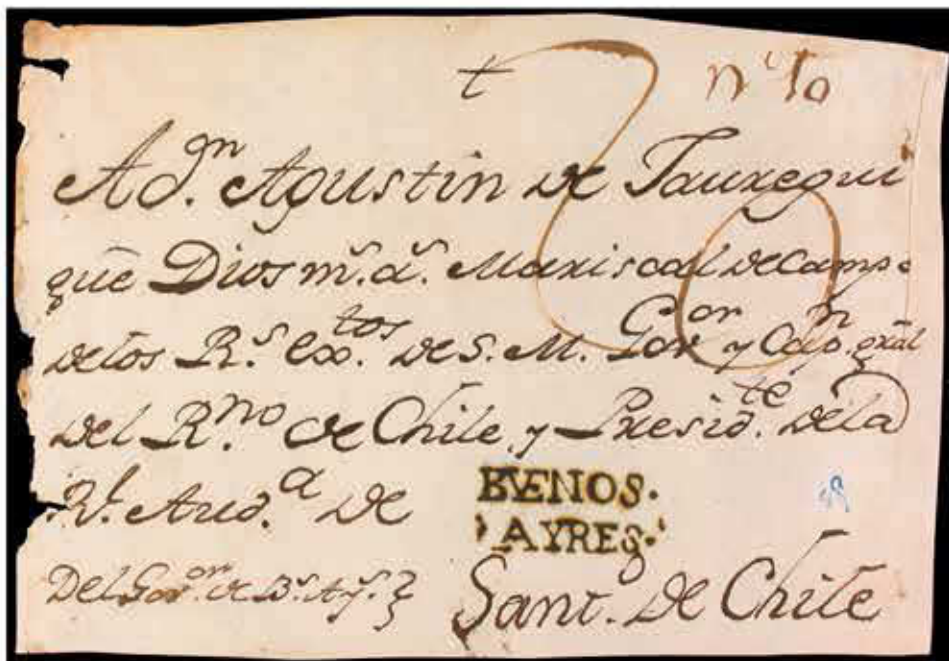 t
A Dn. Agustin de Jauregui
que Dios ms. as. Mariscal de Campo
de los Rs. Extos. de S. M. Gor. y Capn. gral
del Rno. de Chile, y Presidte. de la
Rl. Auda. de
BVENOS.
AYRES.
Del Goor. de Bs. Ays.
Sant. de Chile